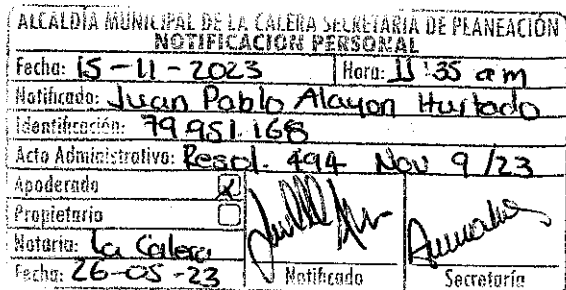 ALCALDÍA MUNICIPAL DE LA CALERA SECRETARÍA DE PLANEACIÓN
NOTIFICACIÓN PERSONAL
Fecha: 15-11-2023 Hora: 11:35 am
Notificado: Juan Pablo Alayon Hurtado
Identificación: 79.951.168
Acto Administrativo: Resol. 494 Nov 9/23
Apoderado
Propietario
Notaria: La Calera
Fecha: 26-05-23 Notificado Secretaría